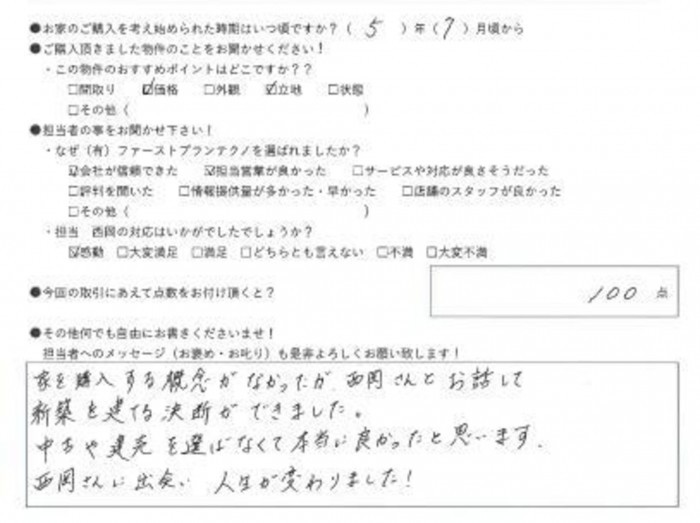 ●お家のご購入を考え始められた時期はいつ頃ですか?( 5 )年(7)月頃から
●ご購入頂きました物件のことをお聞かせください!
・この物件のおすすめポイントはどこですか??
□間取り ☑価格 □外観 ☑立地 □状態
□その他( )
●担当者の事をお聞かせ下さい!
・なぜ(有)ファーストプランテクノを選ばれましたか?
☑会社が信頼できた ☑担当営業が良かった □サービスや対応が良さそうだった
□評判を聞いた □情報提供量が多かった・早かった □店舗のスタッフが良かった
□その他( )
・担当 西岡の対応はいかがでしたでしょうか?
☑感動 □大変満足 □満足 □どちらとも言えない □不満 □大変不満
●今回の取引にあえて点数をお付け頂くと?
100 点
●その他何でも自由にお書きくださいませ!
担当者へのメッセージ(お褒め・お叱り)も是非よろしくお願い致します!
家を購入する概念がなかったが 西岡さんとお話して
新築を建てる決断ができました。
中古や建売を選ばなくて本当に良かったと思います.
西岡さんに出会い 人生が変わりました!